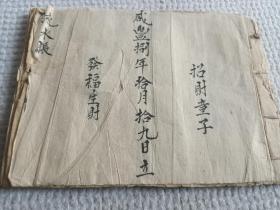 招財童子
咸豐捌年拾月拾九日立
發福生財
流水賬